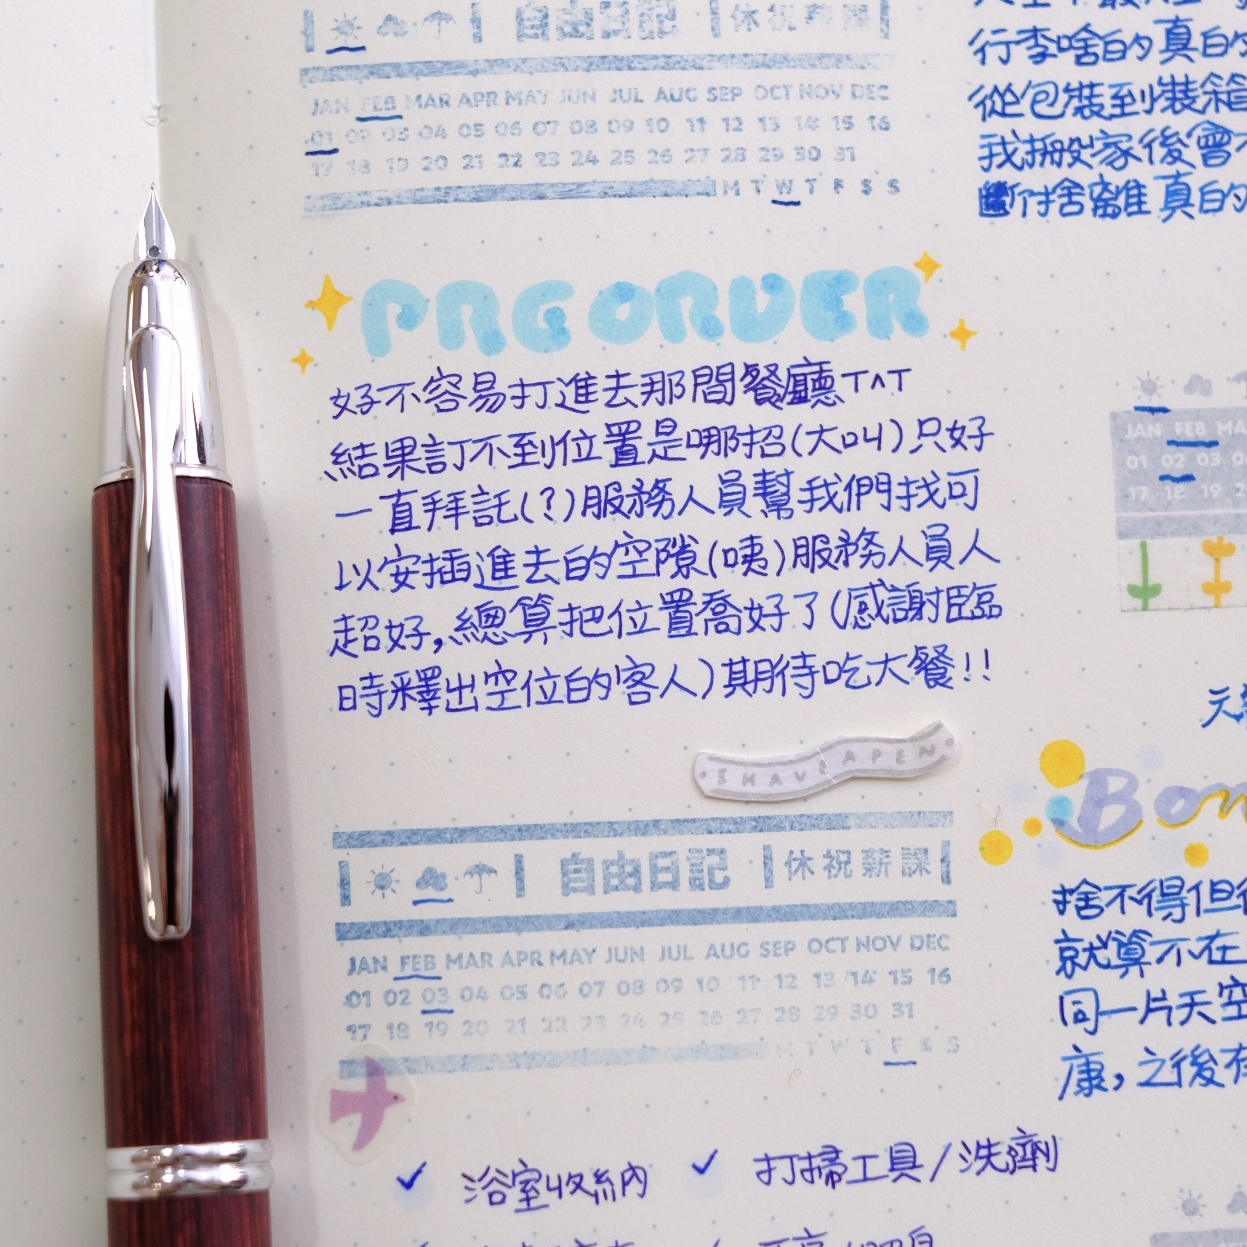 自由日記 休祝薪課
JAN FEB MAR APR MAY JUN JUL AUG SEP OCT NOV DEC
01 02 03 04 05 06 07 08 09 10 11 12 13 14 15 16
17 18 19 20 21 22 23 24 25 26 27 28 29 30 31
M T W T F S S
PREORDER
好不容易打進去那間餐廳TAT
結果訂不到位置是哪招(大叫)只好
一直拜託(?)服務人員幫我們找可
以安插進去的空隙(咦)服務人員人
超好,總算把位置喬好了(感謝臨
時釋出空位的客人)期待吃大餐!!
I HAVE A PEN
自由日記 休祝薪課
JAN FEB MAR APR MAY JUN JUL AUG SEP OCT NOV DEC
01 02 03 04 05 06 07 08 09 10 11 12 13 14 15 16
17 18 19 20 21 22 23 24 25 26 27 28 29 30 31
M T W T F S S
浴室收納 打掃工具/洗劑
行李啥的真的
從包裝到裝箱
我搬家後會
斷捨離真的
JAN FEB MA
01 02 03 0
17 18 19 2
Bon
捨不得但
就算不在
同一片天空
康,之後有